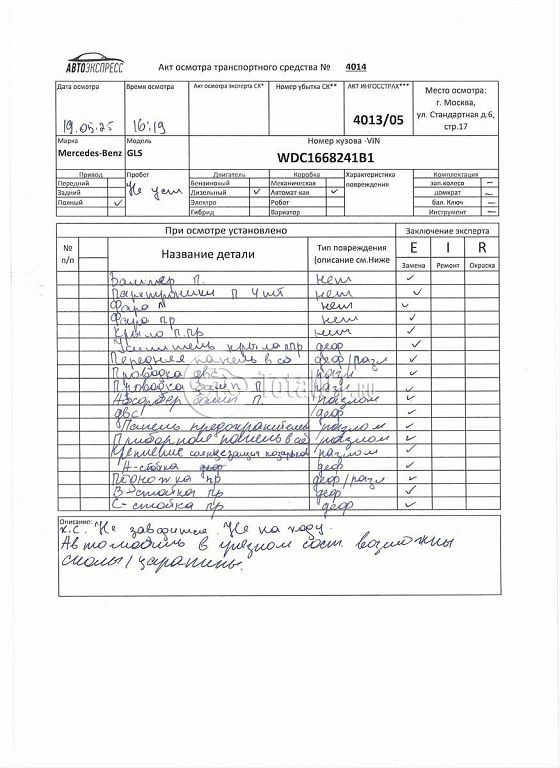 АВТОЭКСПРЕСС
Акт осмотра транспортного средства № 4014
Дата осмотра Время осмотра Акт осмотра эксперта СК* Номер убытка СК** АКТ ИНГОССТРАХ*** Место осмотра:
г. Москва,
ул. Стандартная д.6,
стр.17
19.05.25 16:19 4013/05
Марка Модель Номер кузова -VIN
Mercedes-Benz GLS WDC1668241B1
Привод Пробег Двигатель Коробка Характеристика повреждения Комплектация
Передний Не уст Бензиновый Механическая зап.колесо —
Задний Дизельный ✓ Автомат-кая ✓ домкрат —
Полный ✓ Электро Робот бал. Ключ —
Гибрид Вариатор Инструмент —
При осмотре установлено Заключение эксперта
№ п/п Название детали Тип повреждения (описание см.Ниже E I R
Замена Ремонт Окраска
Бампер П. нет ✓
Парктроники П 4 шт нет ✓
Фара Л нет ✓
Фара пр нет ✓
Крыло п.пр нет ✓
Усилитель крыла п.пр деф ✓
Передняя панель в сб деф/разл ✓
Проводка двс разл ✓
Проводка бамп П разл ✓
Абсорбер бамп П. разлом ✓
двс деф ✓
Панель предохранителей разлом ✓
Приборная панель в сб разлом ✓
Крепление солнцезащит козырьков разлом ✓
А-стойка деф ✓
Подножка пр деф/разл ✓
В-стойка пр деф ✓
С-стойка пр деф ✓
Описание:
х.С. Не заводится. Не на ходу.
Автомобиль в грязном сост. возможны
сколы/царапины.
Total.ru